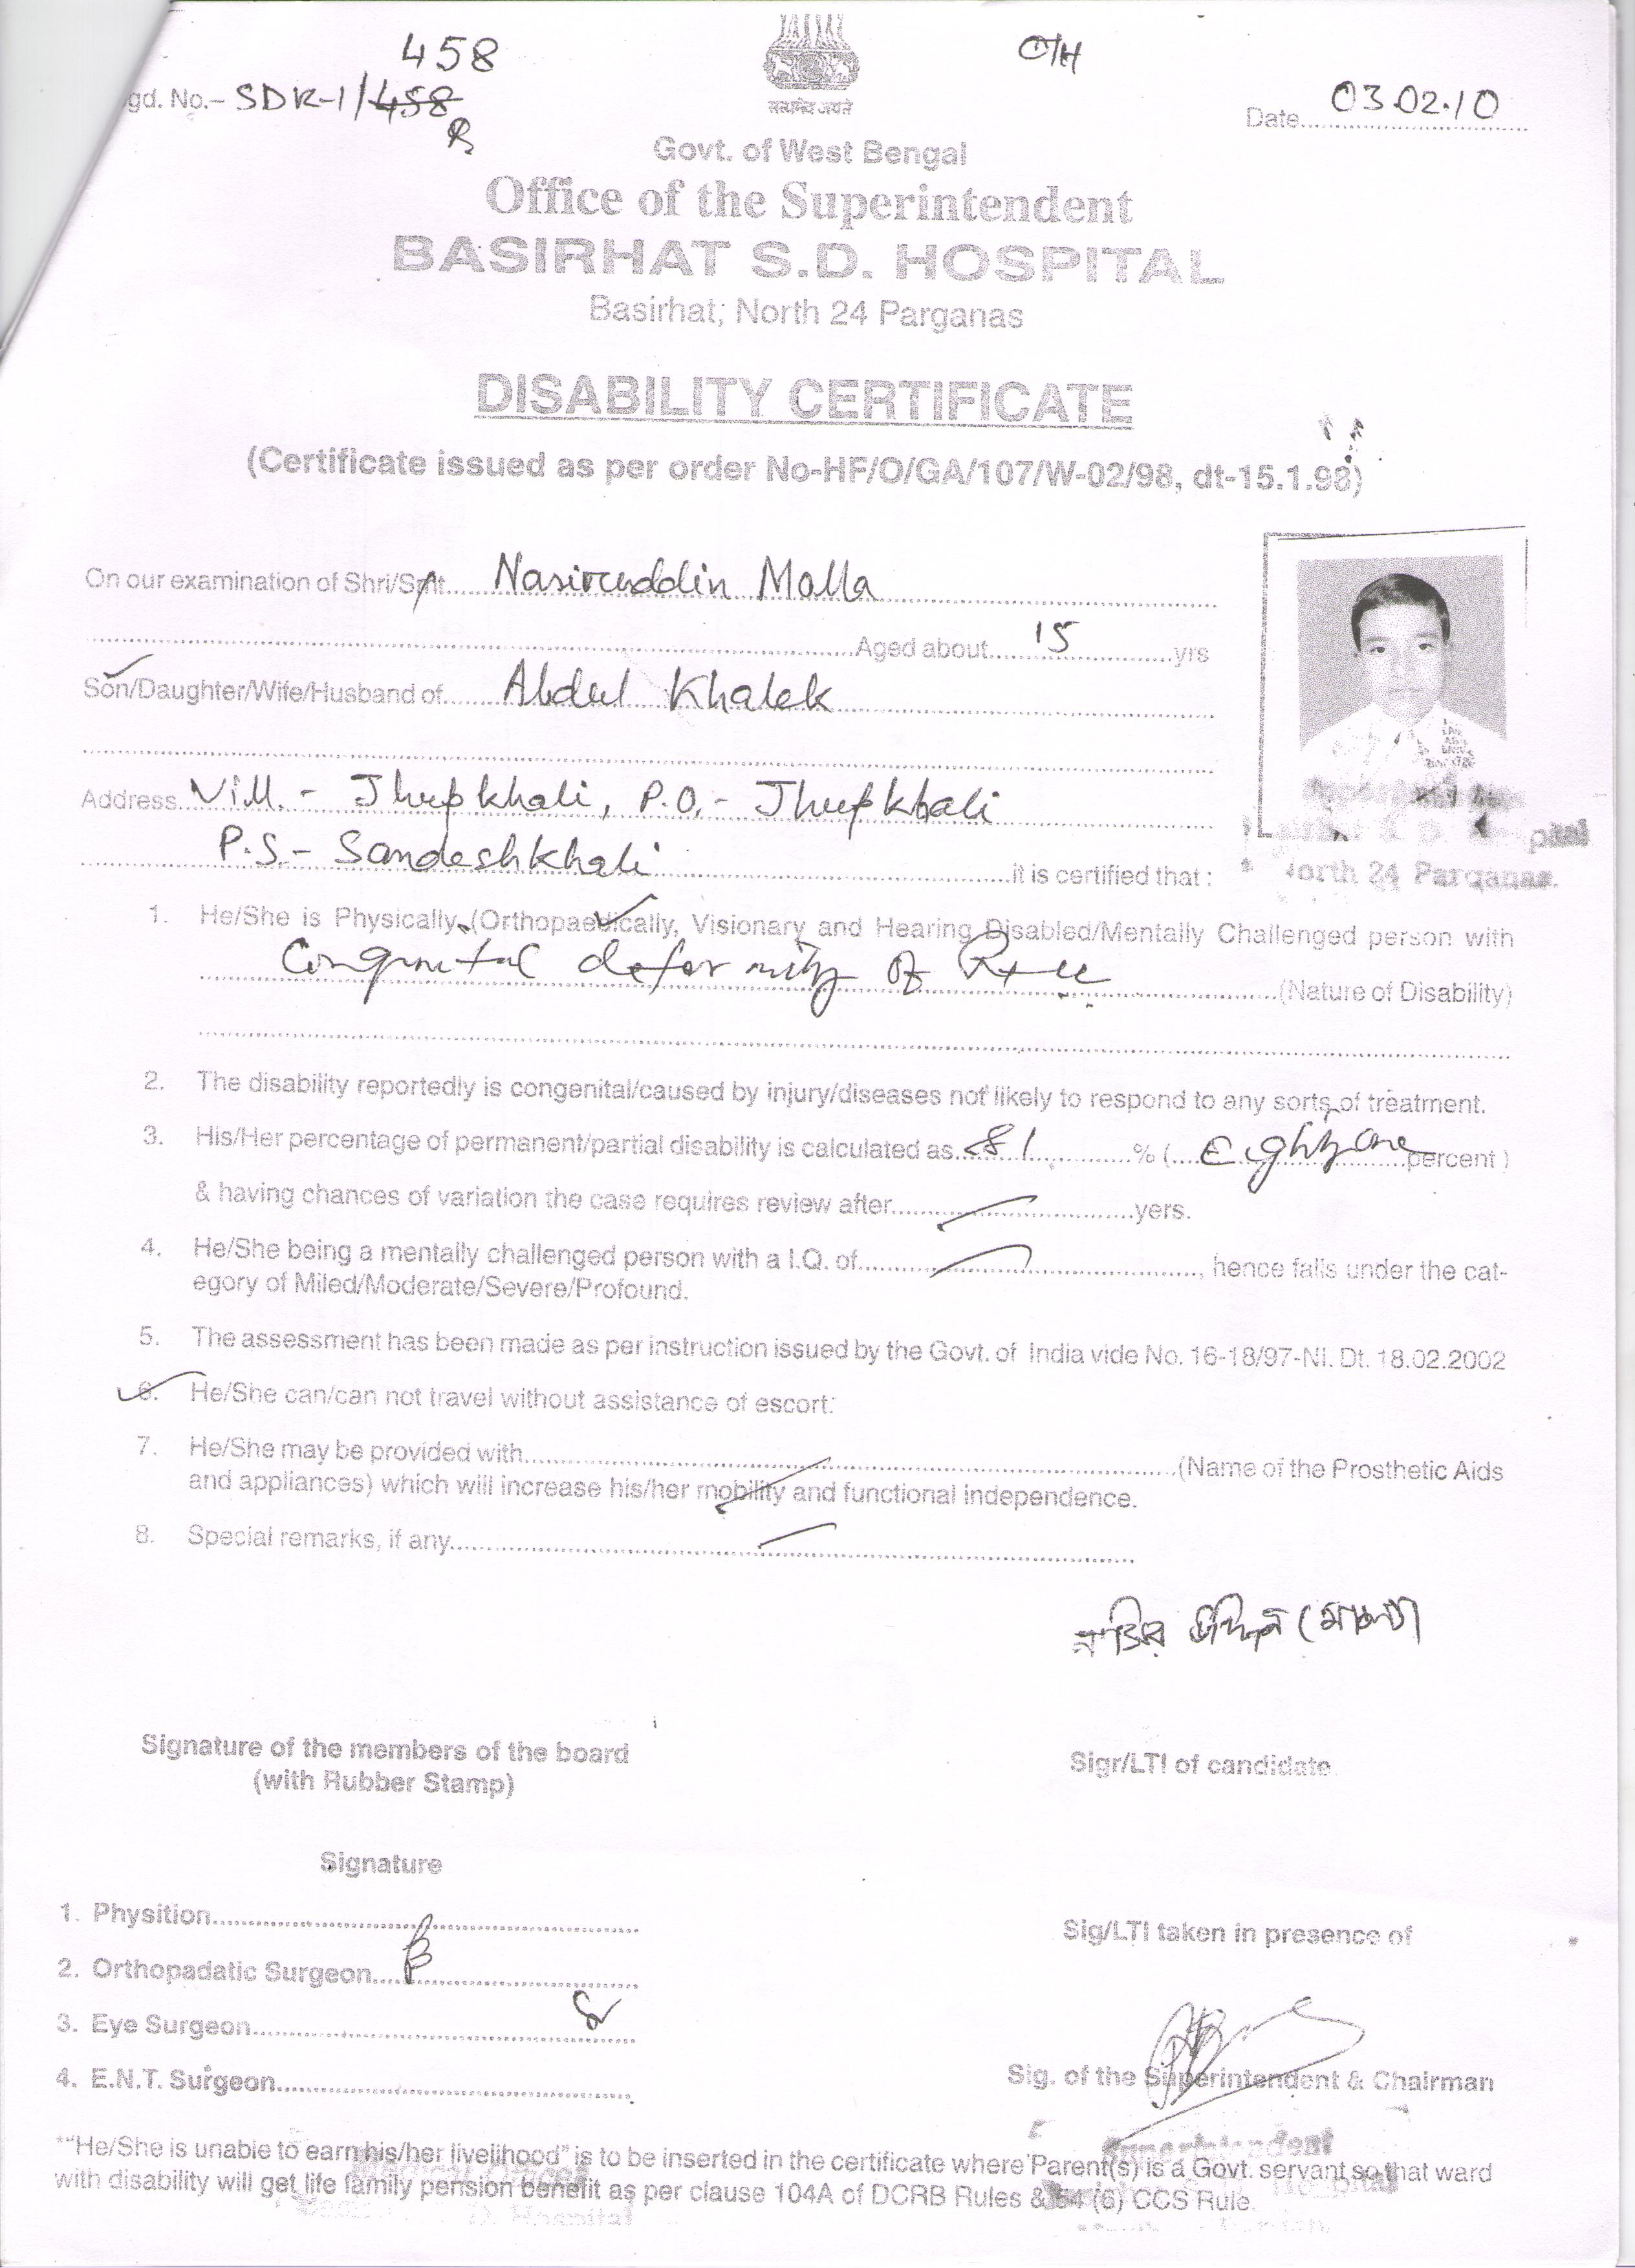 458
OH
gd. No.- SDR-1/458
Date 03.02.10
सत्यमेव जयते
Govt. of West Bengal
Office of the Superintendent
BASIRHAT S.D. HOSPITAL
Basirhat; North 24 Parganas
DISABILITY CERTIFICATE
(Certificate issued as per order No-HF/O/GA/107/W-02/98, dt-15.1.98)
On our examination of Shri/Smt. Nasiruddin Molla
Aged about 15 yrs
Son/Daughter/Wife/Husband of Abdul Khalek
Address Vill.- Jhupkhali, P.O.- Jhupkhali
P.S.- Sandeshkhali it is certified that :
North 24 Parganas.
1. He/She is Physically (Orthopaedically, Visionary and Hearing Disabled/Mentally Challenged person with
Congenital deformity of Rt (Nature of Disability)
2. The disability reportedly is congenital/caused by injury/diseases not likely to respond to any sorts of treatment.
3. His/Her percentage of permanent/partial disability is calculated as 81 % ( Eighty one percent )
& having chances of variation the case requires review after yers.
4. He/She being a mentally challenged person with a I.Q. of , hence falls under the cat-
egory of Miled/Moderate/Severe/Profound.
5. The assessment has been made as per instruction issued by the Govt. of India vide No. 16-18/97-NI. Dt. 18.02.2002
6. He/She can/can not travel without assistance of escort:
7. He/She may be provided with (Name of the Prosthetic Aids
and appliances) which will increase his/her mobility and functional independence.
8. Special remarks, if any
Signature of the members of the board
(with Rubber Stamp)
Sigr/LTI of candidate
Signature
1. Physition
Sig/LTI taken in presence of
2. Orthopadatic Surgeon
3. Eye Surgeon
4. E.N.T. Surgeon
Sig. of the Superintendent & Chairman
Superintendent
*"He/She is unable to earn his/her livelihood" is to be inserted in the certificate where Parent(s) is a Govt. servant so that ward
with disability will get life family pension benefit as per clause 104A of DCRB Rules & 54 (6) CCS Rule.